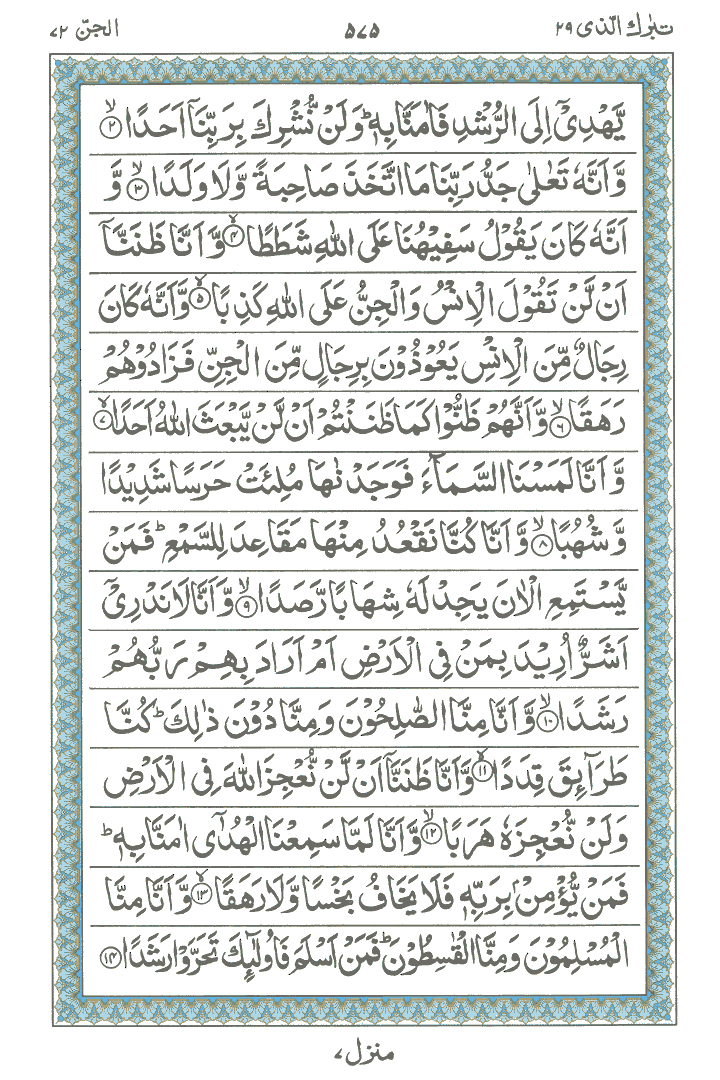 تبٰرك الّذى ٢٩
٥٧٥
الجنّ ٧٢
يَّهْدِىْۤ اِلَى الرُّشْدِ فَاٰمَنَّا بِهٖ ؕ وَلَنْ نُّشْرِكَ بِرَبِّنَاۤ اَحَدًا ۙ﴿٢﴾
وَّاَنَّهٗ تَعٰلٰى جَدُّ رَبِّنَا مَا اتَّخَذَ صَاحِبَةً وَّلَا وَلَدًا ۙ﴿٣﴾ وَّ
اَنَّهٗ كَانَ يَقُوْلُ سَفِيْهُنَا عَلَى اللّٰهِ شَطَطًا ۙ﴿٤﴾ وَّ اَنَّا ظَنَنَّاۤ
اَنْ لَّنْ تَقُوْلَ الْاِنْسُ وَالْجِنُّ عَلَى اللّٰهِ كَذِبًا ۙ﴿٥﴾ وَّاَنَّهٗ كَانَ
رِجَالٌ مِّنَ الْاِنْسِ يَعُوْذُوْنَ بِرِجَالٍ مِّنَ الْجِنِّ فَزَادُوْهُمْ
رَهَقًا ۙ﴿٦﴾ وَّاَنَّهُمْ ظَنُّوْا كَمَا ظَنَنْتُمْ اَنْ لَّنْ يَّبْعَثَ اللّٰهُ اَحَدًا ۙ﴿٧﴾
وَّ اَنَّا لَمَسْنَا السَّمَآءَ فَوَجَدْنٰهَا مُلِئَتْ حَرَسًا شَدِيْدًا
وَّ شُهُبًا ۙ﴿٨﴾ وَّ اَنَّا كُنَّا نَقْعُدُ مِنْهَا مَقَاعِدَ لِلسَّمْعِ ؕ فَمَنْ
يَّسْتَمِعِ الْاٰنَ يَجِدْ لَهٗ شِهَابًا رَّصَدًا ۙ﴿٩﴾ وَّ اَنَّا لَا نَدْرِىْۤ
اَشَرٌّ اُرِيْدَ بِمَنْ فِى الْاَرْضِ اَمْ اَرَادَ بِهِمْ رَبُّهُمْ
رَشَدًا ۙ﴿١٠﴾ وَّ اَنَّا مِنَّا الصّٰلِحُوْنَ وَمِنَّا دُوْنَ ذٰلِكَ ؕ كُنَّا
طَرَآئِقَ قِدَدًا ۙ﴿١١﴾ وَّاَنَّا ظَنَنَّاۤ اَنْ لَّنْ نُّعْجِزَ اللّٰهَ فِى الْاَرْضِ
وَلَنْ نُّعْجِزَهٗ هَرَبًا ۙ﴿١٢﴾ وَّاَنَّا لَمَّا سَمِعْنَا الْهُدٰۤى اٰمَنَّا بِهٖ ؕ
فَمَنْ يُّؤْمِنْۢ بِرَبِّهٖ فَلَا يَخَافُ بَخْسًا وَّلَا رَهَقًا ۙ﴿١٣﴾ وَّ اَنَّا مِنَّا
الْمُسْلِمُوْنَ وَمِنَّا الْقٰسِطُوْنَ ؕ فَمَنْ اَسْلَمَ فَاُولٰٓئِكَ تَحَرَّوْا رَشَدًا ﴿١٤﴾
منزل ٧